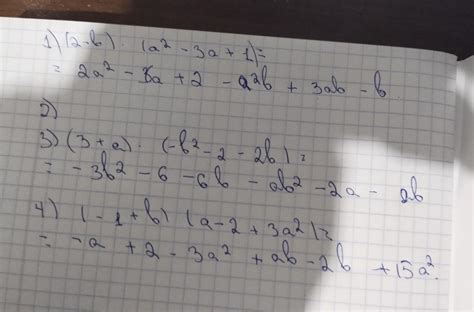 1) (2-b) · (a² - 3a + 1) =
= 2a² - a + 2 - a²b + 3ab - b
2)
3) (3 + a) · (-b² - 2 - 2b) =
= -3b² - 6 - 6b - ab² - 2a - 2b
4) (-1 + b) (a - 2 + 3a²) =
= -a + 2 - 3a² + ab - 2b + 15a²